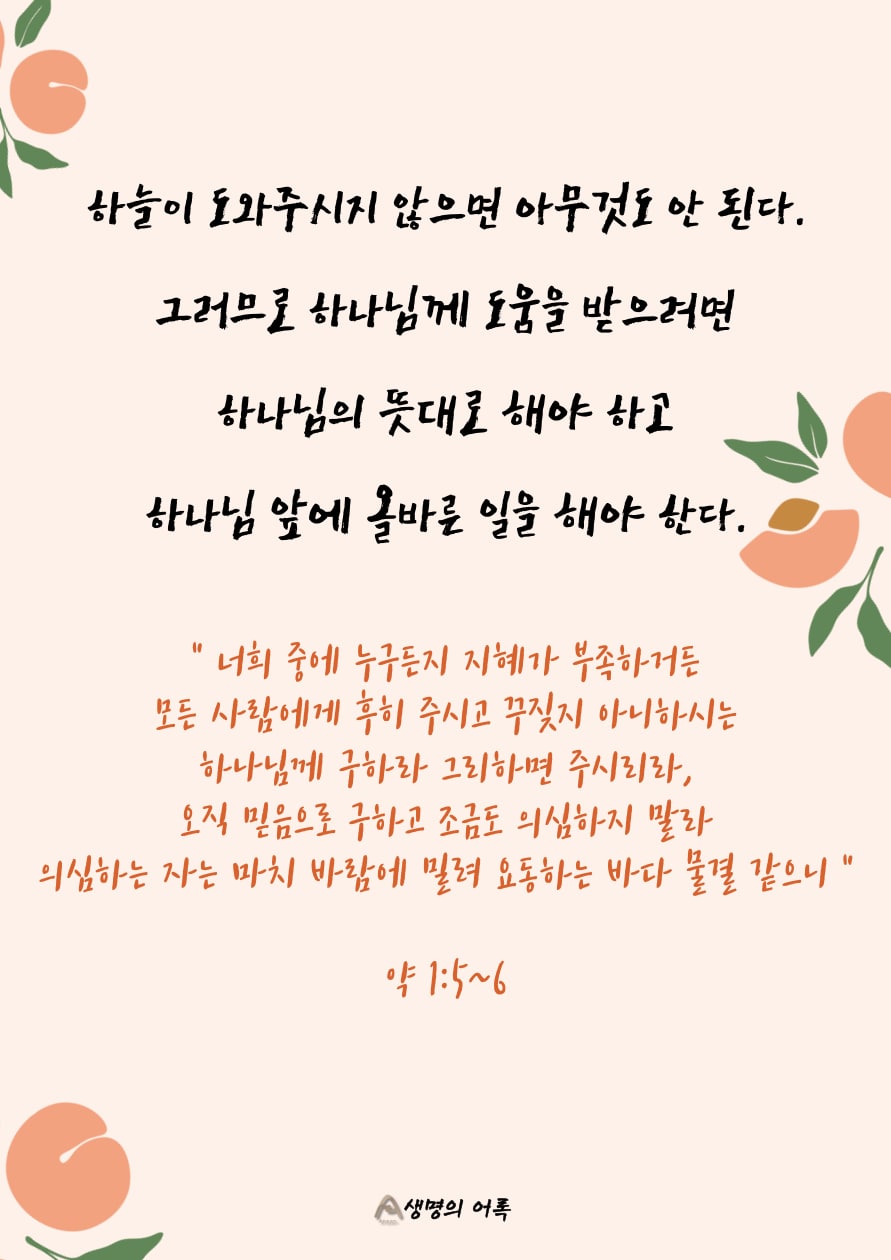 하늘이 도와주시지 않으면 아무것도 안 된다.
그러므로 하나님께 도움을 받으려면
하나님의 뜻대로 해야 하고
하나님 앞에 올바른 일을 해야 한다.
" 너희 중에 누구든지 지혜가 부족하거든
모든 사람에게 후히 주시고 꾸짖지 아니하시는
하나님께 구하라 그리하면 주시리라,
오직 믿음으로 구하고 조금도 의심하지 말라
의심하는 자는 마치 바람에 밀려 요동하는 바다 물결 같으니 "
약 1:5~6
생명의 어록